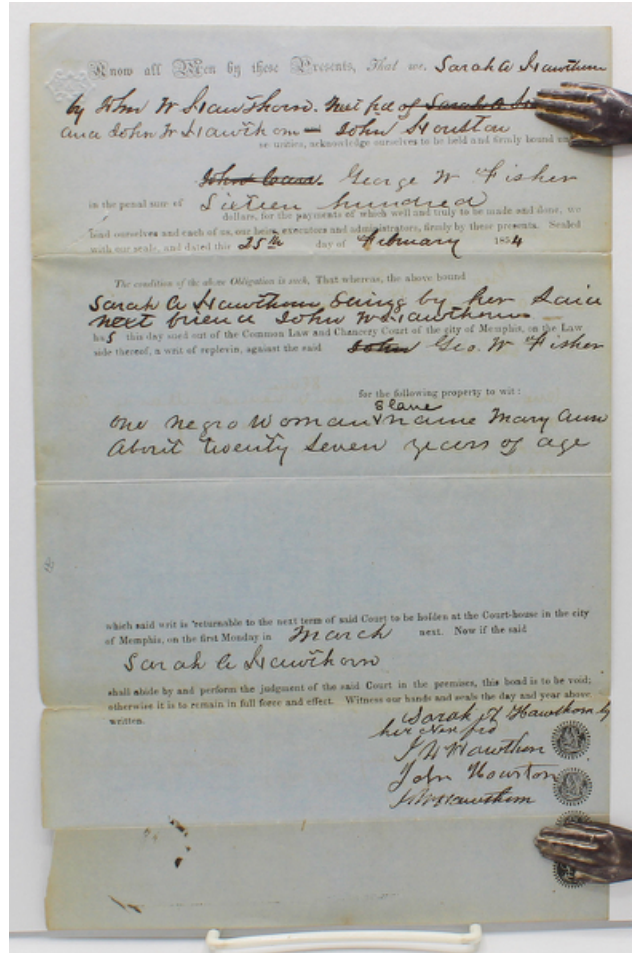 Know all Men by these Presents, That we, Sarah A Hawthorn
by John W Hawthorn. next frd of Sarah A
and John W Hawthorn John Houston
or unities, acknowledge ourselves to be held and firmly bound
John George W Fisher
in the penal sum of Sixteen hundred
dollars, for the payments of which well and truly to be made and done, we
bind ourselves and each of us, our heirs, executors and administrators, firmly by these presents. Sealed
with our seals, and dated this 25th day of February 1854
The condition of the above Obligation is such, That whereas, the above bound
Sarah A Hawthorn Suing by her said
next friend John W Hawthorn
has this day sued out of the Common Law and Chancery Court of the city of Memphis, on the Law
side thereof, a writ of replevin, against the said John Geo. W Fisher
for the following property to wit:
Slave
One negro Woman name Mary Ann
About twenty Seven years of age
which said writ is returnable to the next term of said Court to be holden at the Court-house in the city
of Memphis, on the first Monday in March next. Now if the said
Sarah A Hawthorn
shall abide by and perform the judgment of the said Court in the premises, this bond is to be void;
otherwise it is to remain in full force and effect. Witness our hands and seals the day and year above
written.
Sarah A Hawthorn by
her next frd
J W Hawthorn
John Houston
J W Hawthorn